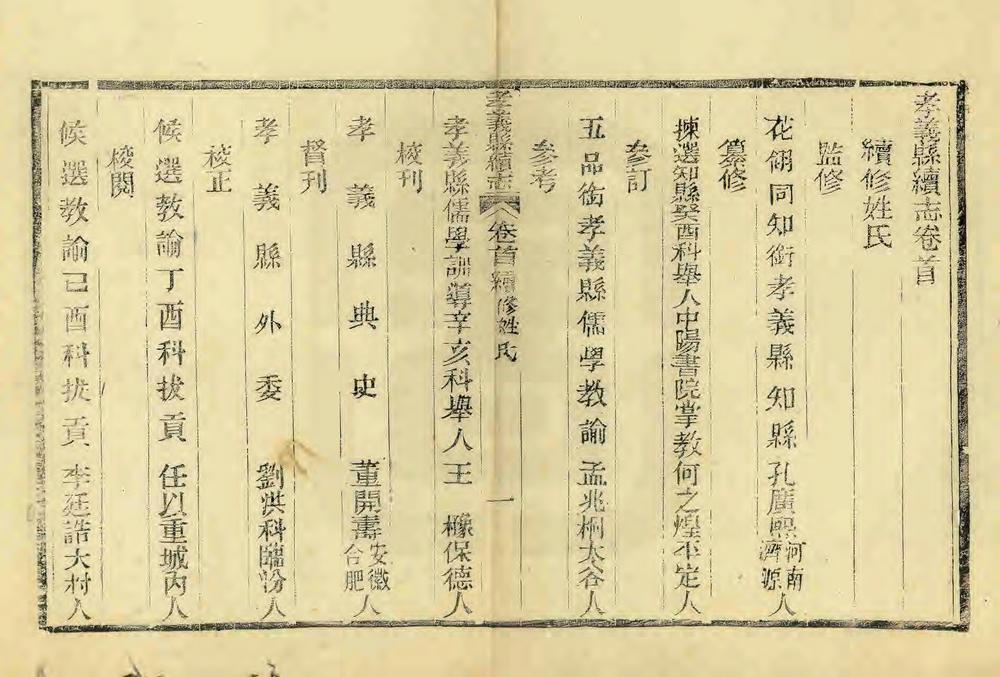 孝義縣續志卷首
續修姓氏
監修
花翎同知銜孝義縣知縣孔廣熙河南濟源人
纂修
揀選知縣癸酉科舉人中陽書院掌教何之煌平定人
參訂
五品銜孝義縣儒學教諭孟兆桐太谷人
參考
孝義縣續志 卷首 續修姓氏 一
孝義縣儒學訓導辛亥科舉人王 橡保德人
校刊
孝義縣典史 董開壽安徽合肥人
督刊
孝義縣外委 劉洪科臨汾人
校正
候選教諭丁酉科拔貢任以重城內人
校閱
候選教諭己酉科拔貢李廷誥大村人